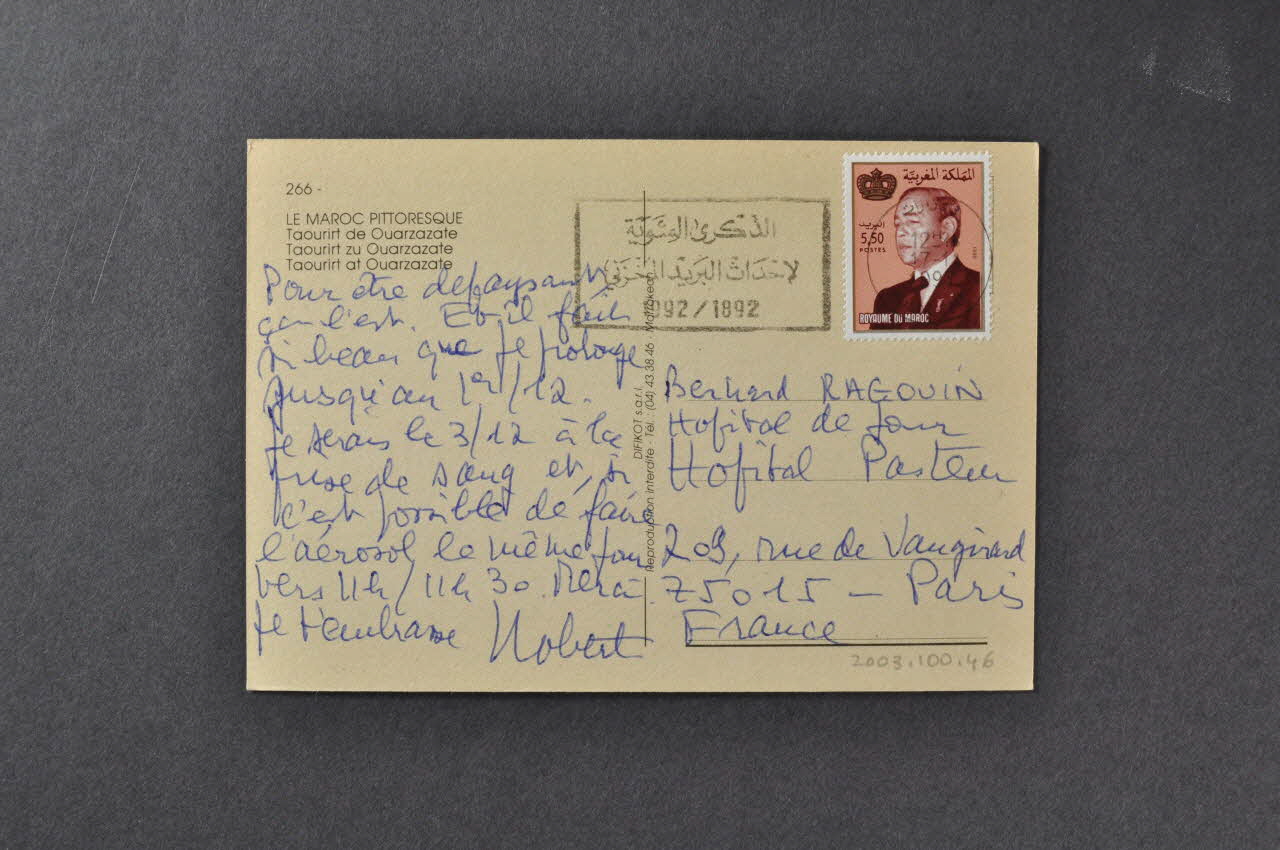 266 -
LE MAROC PITTORESQUE
Taourirt de Ouarzazate
Taourirt zu Ouarzazate
Taourirt at Ouarzazate
Pour être depaysant
ça l'est. Et il fait
si beau que je prolonge
jusqu'au 1er/12.
Je serais le 3/12 à la
prise de sang et, si
c'est possible de faire
l'aérosol le même jour
vers 11h/11h30. Merci
Je t'embrasse
Nobert
DIFIKOT s.a.r.l.
Reproduction interdite - Tél. : (04) 43.38.46 - Marrakech
الذكرى المئوية
لإحداث البريد المخزني
1992/1892
المملكة المغربية
البريد
5,50
POSTES
ROYAUME DU MAROC
Bernard RAGOUIN
Hopital de Jour
Hopital Pasteur
209, rue de Vaugirard
75015 - Paris
France
2003.100.46